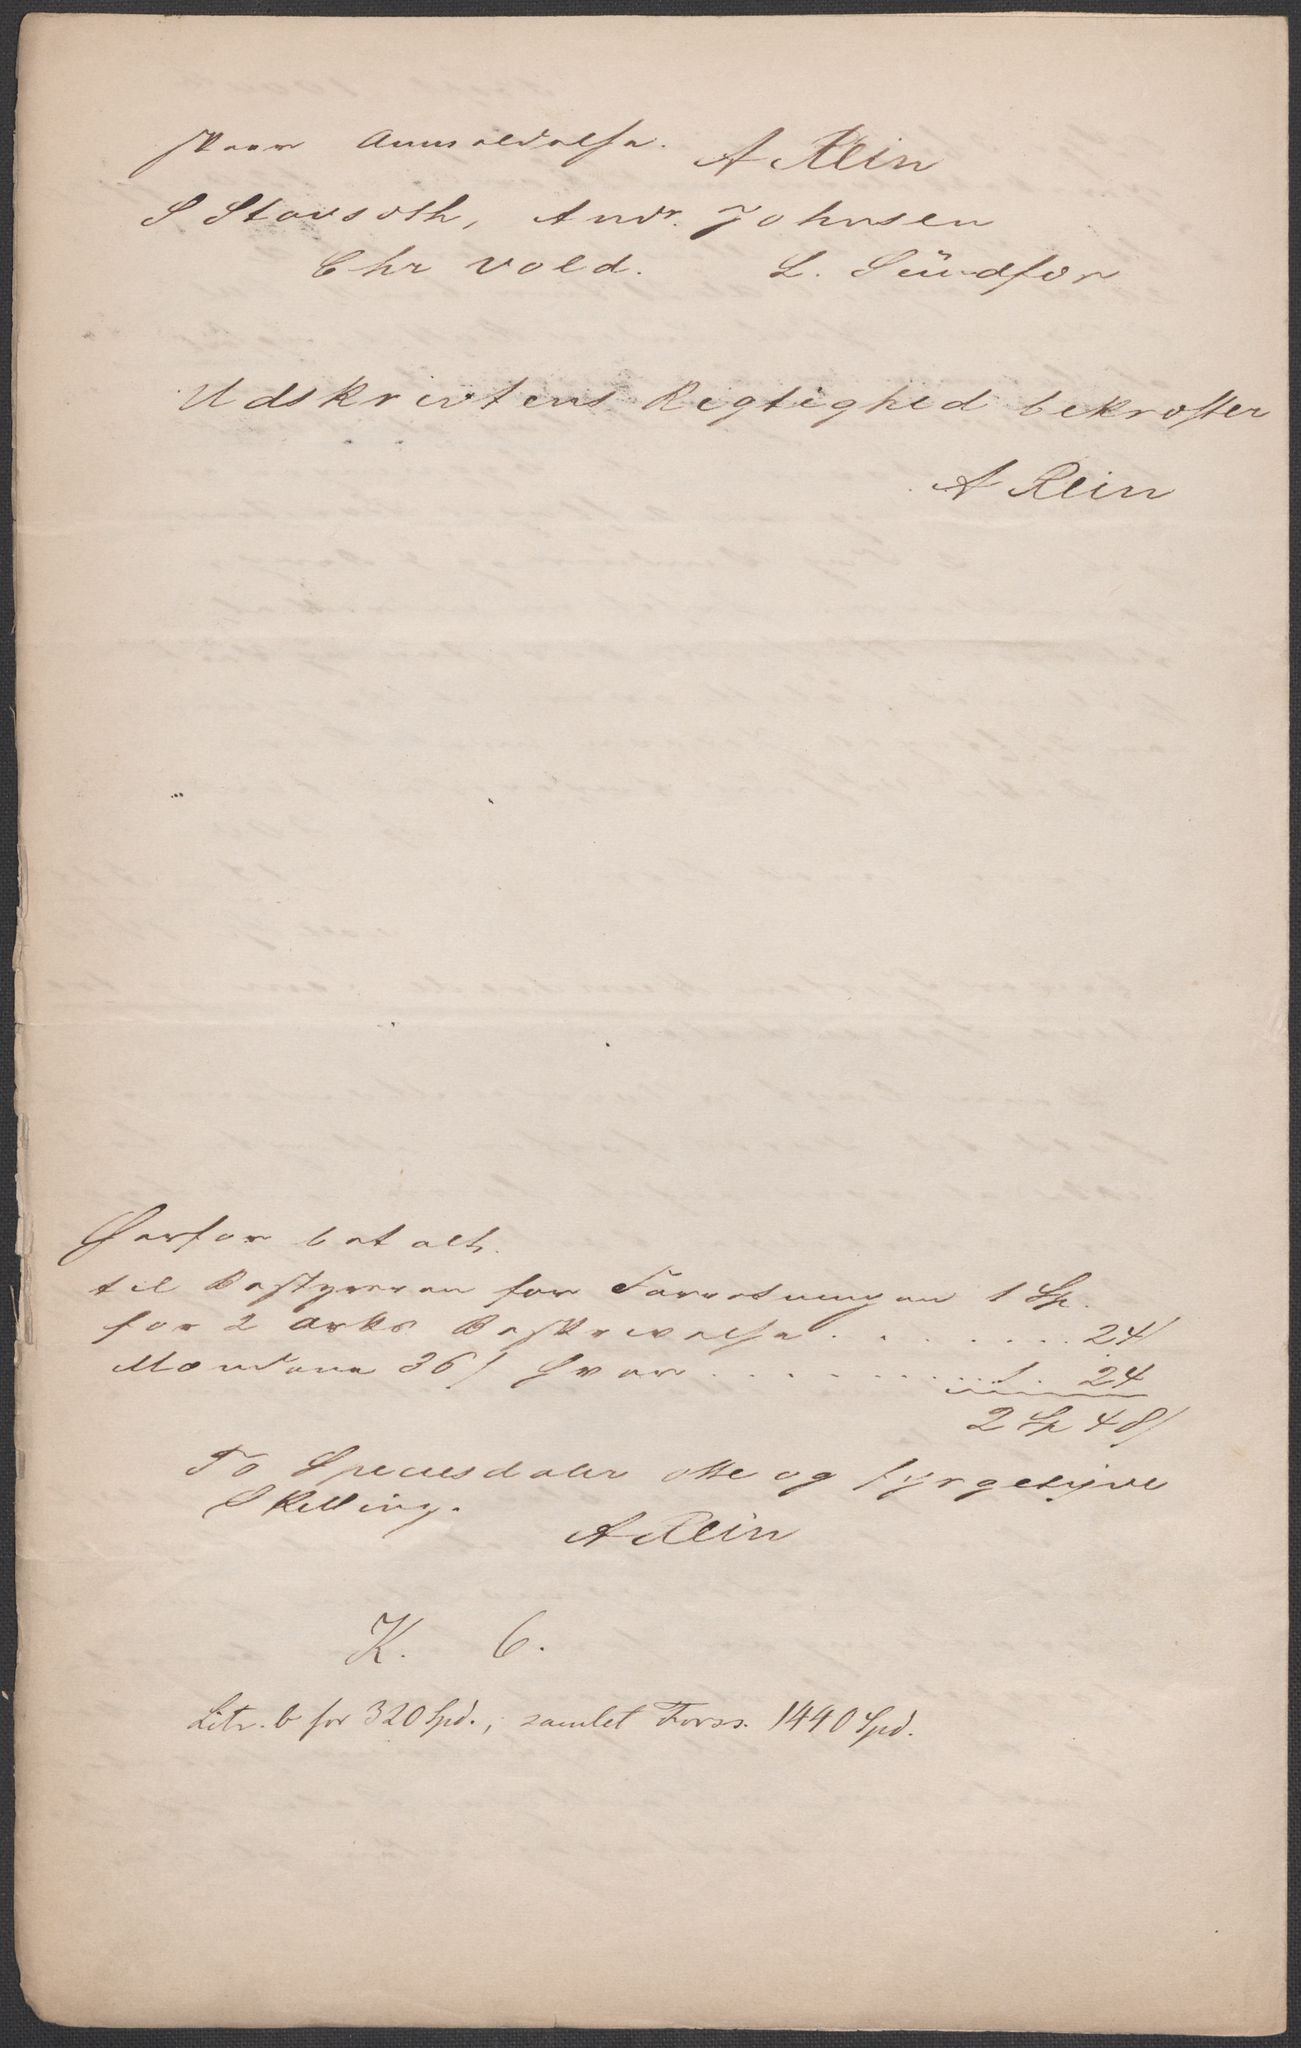 skeer Anmeldelse. A Klein
S Stavseth, Andr. Johnsen
Chr Vold. L. Sündfør
Udskrivtens Rigtighed bekræfter
A Klein
Herfor betalt.
til Bestyreren for Forretningen 1 Sp.
for 2 Arks Beskrivelse . . . . . . . 24 ſ
Mændene 36 ſ Hver . . . . . . . . 1. 24
2 Sp 48 ſ
To Speciesdaler otte og fyrgetyve
Skilling.
A Klein
K. 6.
Litr. b for 320 Spd., samlet Forss. 1440 Spd.